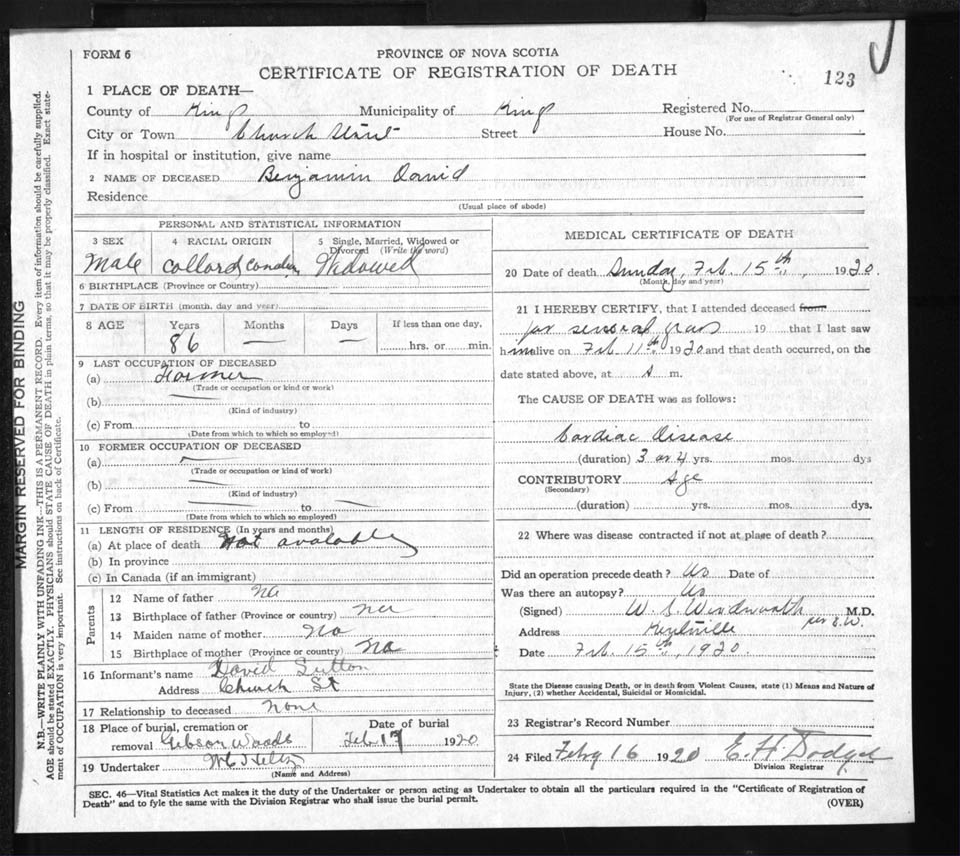 FORM 6
PROVINCE OF NOVA SCOTIA
CERTIFICATE OF REGISTRATION OF DEATH
123
1 PLACE OF DEATH—
County of King Municipality of King Registered No.
(For use of Registrar General only)
City or Town Church Street Street House No.
If in hospital or institution, give name
2 NAME OF DECEASED Benjamin David
Residence
(Usual place of abode)
PERSONAL AND STATISTICAL INFORMATION
3 SEX 4 RACIAL ORIGIN 5 Single, Married, Widowed or
Divorced (Write the word)
Male Collard Widowed
6 BIRTHPLACE (Province or Country)
7 DATE OF BIRTH (month, day and year)
8 AGE Years Months Days If less than one day,
86 — — hrs. or min.
9 LAST OCCUPATION OF DECEASED
(a) Farmer
(Trade or occupation or kind or work)
(b)
(Kind of industry)
(c) From to
(Date from which to which so employed)
10 FORMER OCCUPATION OF DECEASED
(a)
(Trade or occupation or kind of work)
(b)
(Kind of industry)
(c) From to
(Date from which to which so employed)
11 LENGTH OF RESIDENCE (In years and months)
(a) At place of death Not avalable
(b) In province
(c) In Canada (if an immigrant)
Parents
12 Name of father na
13 Birthplace of father (Province or country)
14 Maiden name of mother No
15 Birthplace of mother (Province or country) na
16 Informant's name David Sutton
Address Church St
17 Relationship to deceased none
18 Place of burial, cremation or Date of burial
removal Gibson Woods Feb 17 1920
19 Undertaker
(Name and Address)
MEDICAL CERTIFICATE OF DEATH
20 Date of death Sunday, Feb. 15th, 1920.
(Month, day and year)
21 I HEREBY CERTIFY, that I attended deceased from
for several years 19 that I last saw
him alive on Feb 11th 1920 and that death occurred, on the
date stated above, at m.
The CAUSE OF DEATH was as follows:
Cardiac Disease
(duration) 3 or 4 yrs. mos. dys
CONTRIBUTORY Age
(Secondary)
(duration) yrs. mos. dys.
22 Where was disease contracted if not at place of death?
Did an operation precede death? No Date of
Was there an autopsy? No
(Signed) W. S. Woodworth M.D.
per E.W.
Address Kentville
Date Feb. 15th, 1920.
State the Disease causing Death, or in death from Violent Causes, state (1) Means and Nature of
Injury, (2) whether Accidental, Suicidal or Homicidal.
23 Registrar's Record Number
24 Filed Feby 16 1920 E. H. Dodge
Division Registrar
SEC. 46—Vital Statistics Act makes it the duty of the Undertaker or person acting as Undertaker to obtain all the particulars required in the "Certificate of Registration of
Death" and to fyle the same with the Division Registrar who shall issue the burial permit.
(OVER)
MARGIN RESERVED FOR BINDING
N.B.—WRITE PLAINLY WITH UNFADING INK—THIS IS A PERMANENT RECORD. Every item of information should be carefully supplied.
AGE should be stated EXACTLY. PHYSICIANS should STATE CAUSE OF DEATH in plain terms, so that it may be properly classified. Exact state-
ment of OCCUPATION is very important. See instructions on back of Certificate.